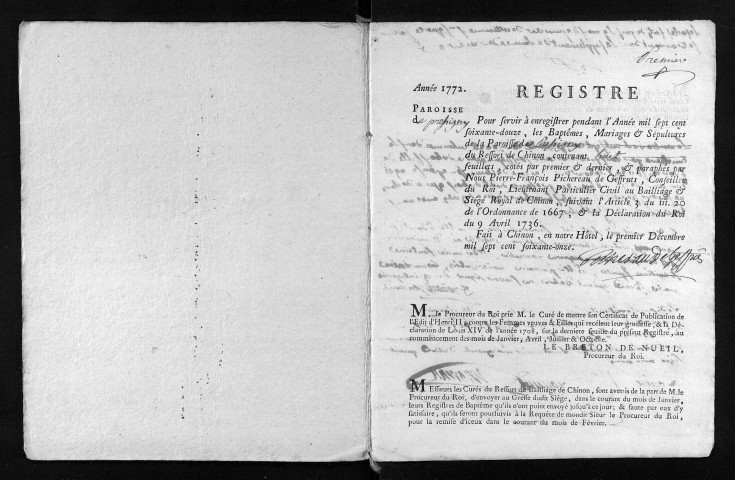 Premier
Année 1772.
REGISTRE
PAROISSE
de
Pour servir à enregistrer pendant l'Année mil sept cent
soixante-douze, les Baptêmes, Mariages & Sépultures
de la Paroisse de
du Ressort de Chinon, contenant huit
feuillets, cotés par premier & dernier, & paraphés par
Nous Pierre-François Pichereau de Geffruts, Conseiller
du Roi, Lieutenant Particulier Civil au Bailliage &
Siége Royal de Chinon, suivant l'Article 3 du tit. 20
de l'Ordonnance de 1667, & la Déclaration du Roi
du 9 Avril 1736.
Fait à Chinon, en notre Hôtel, le premier Décembre
mil sept cent soixante-onze.
M. le Procureur du Roi prie M. le Curé de mettre son Certificat de Publication de
l'Edit d'Henri II contre les Femmes veuves & Filles qui recélent leur grossesse, & la Dé-
claration de Louis XIV de l'année 1708, sur la derniere feuille du présent Registre, au
commencement des mois de Janvier, Avril, Juillet & Octobre.
LE BRETON DE NUEIL,
Procureur du Roi.
Messieurs les Curés du Ressort du Bailliage de Chinon, sont avertis de la part de M. le
Procureur du Roi, d'envoyer au Greffe dudit Siége, dans le courant du mois de Janvier,
leurs Registres de Baptême qu'ils n'ont point envoyé jusqu'à ce jour; & faute par eux d'y
satisfaire, qu'ils seront poursuivis à la Requête de mondit Sieur le Procureur du Roi,
pour la remise d'iceux dans le courant du mois de Février.